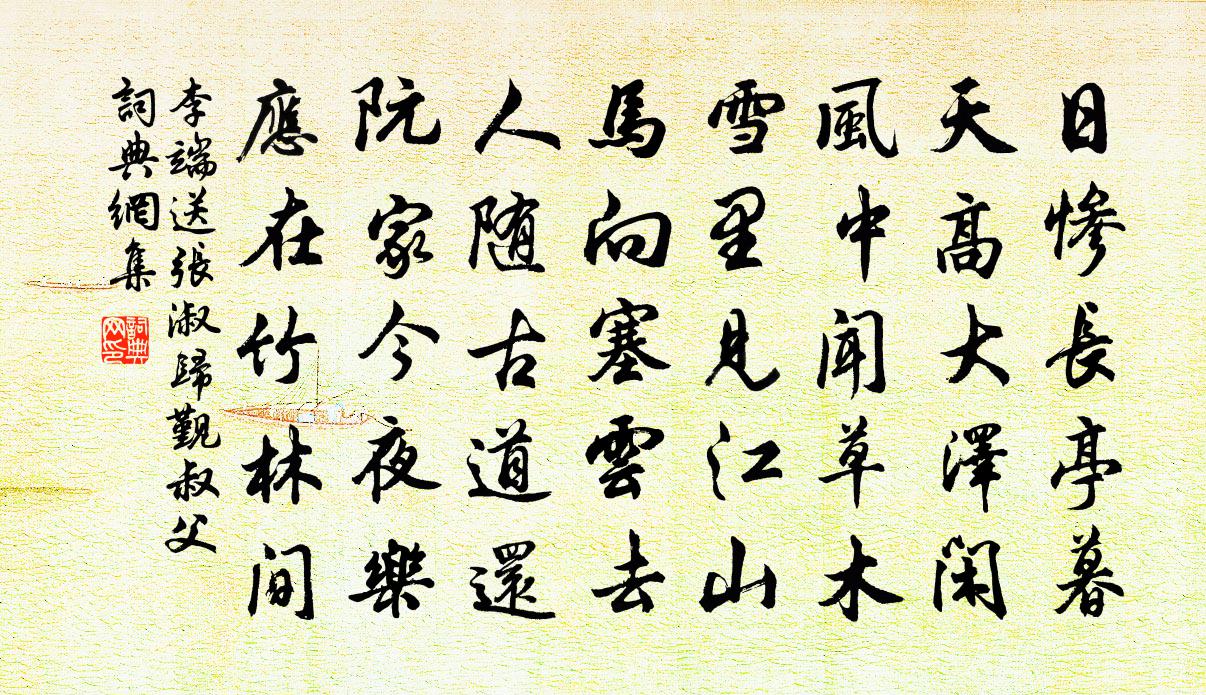 日慘長亭暮
天高大澤閑
風中聞草木
雪里見江山
馬向塞雲去
人随古道還
阮家今夜樂
應在竹林間
李端送張淑歸覲叔父
詞典網集
詞典网印